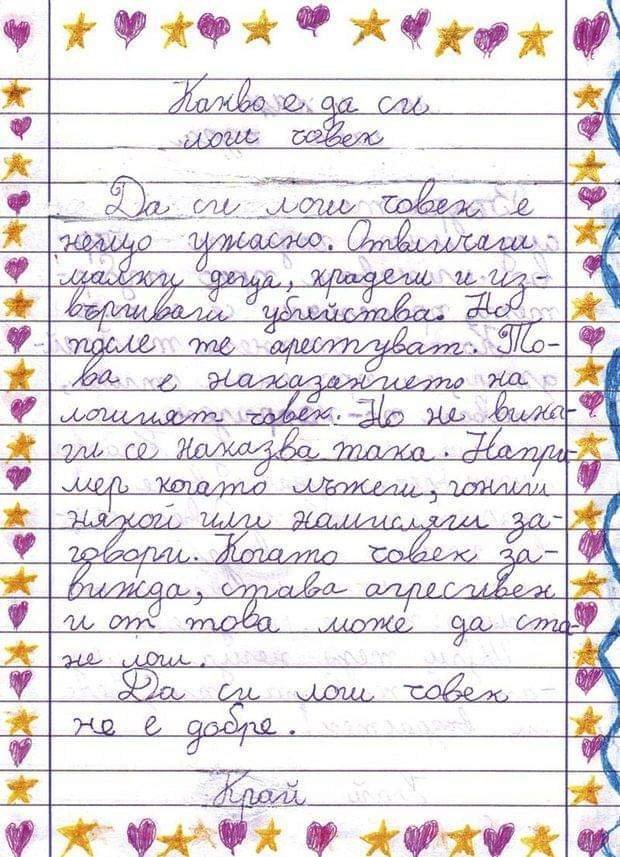 Какво е да си
лош човек
Да си лош човек е
нещо ужасно. Отвличаш
малки деца, крадеш и из-
вършваш убийства. Но
после те арестуват. То-
ва е наказанието на
лошият човек. Но не вина-
ги се наказва така. Напри-
мер когато лъжеш, гониш
някой или намисляш за-
говори. Когато човек за-
вижда, става агресивен
и от това може да ста-
не лош.
Да си лош човек
не е добре.
Край